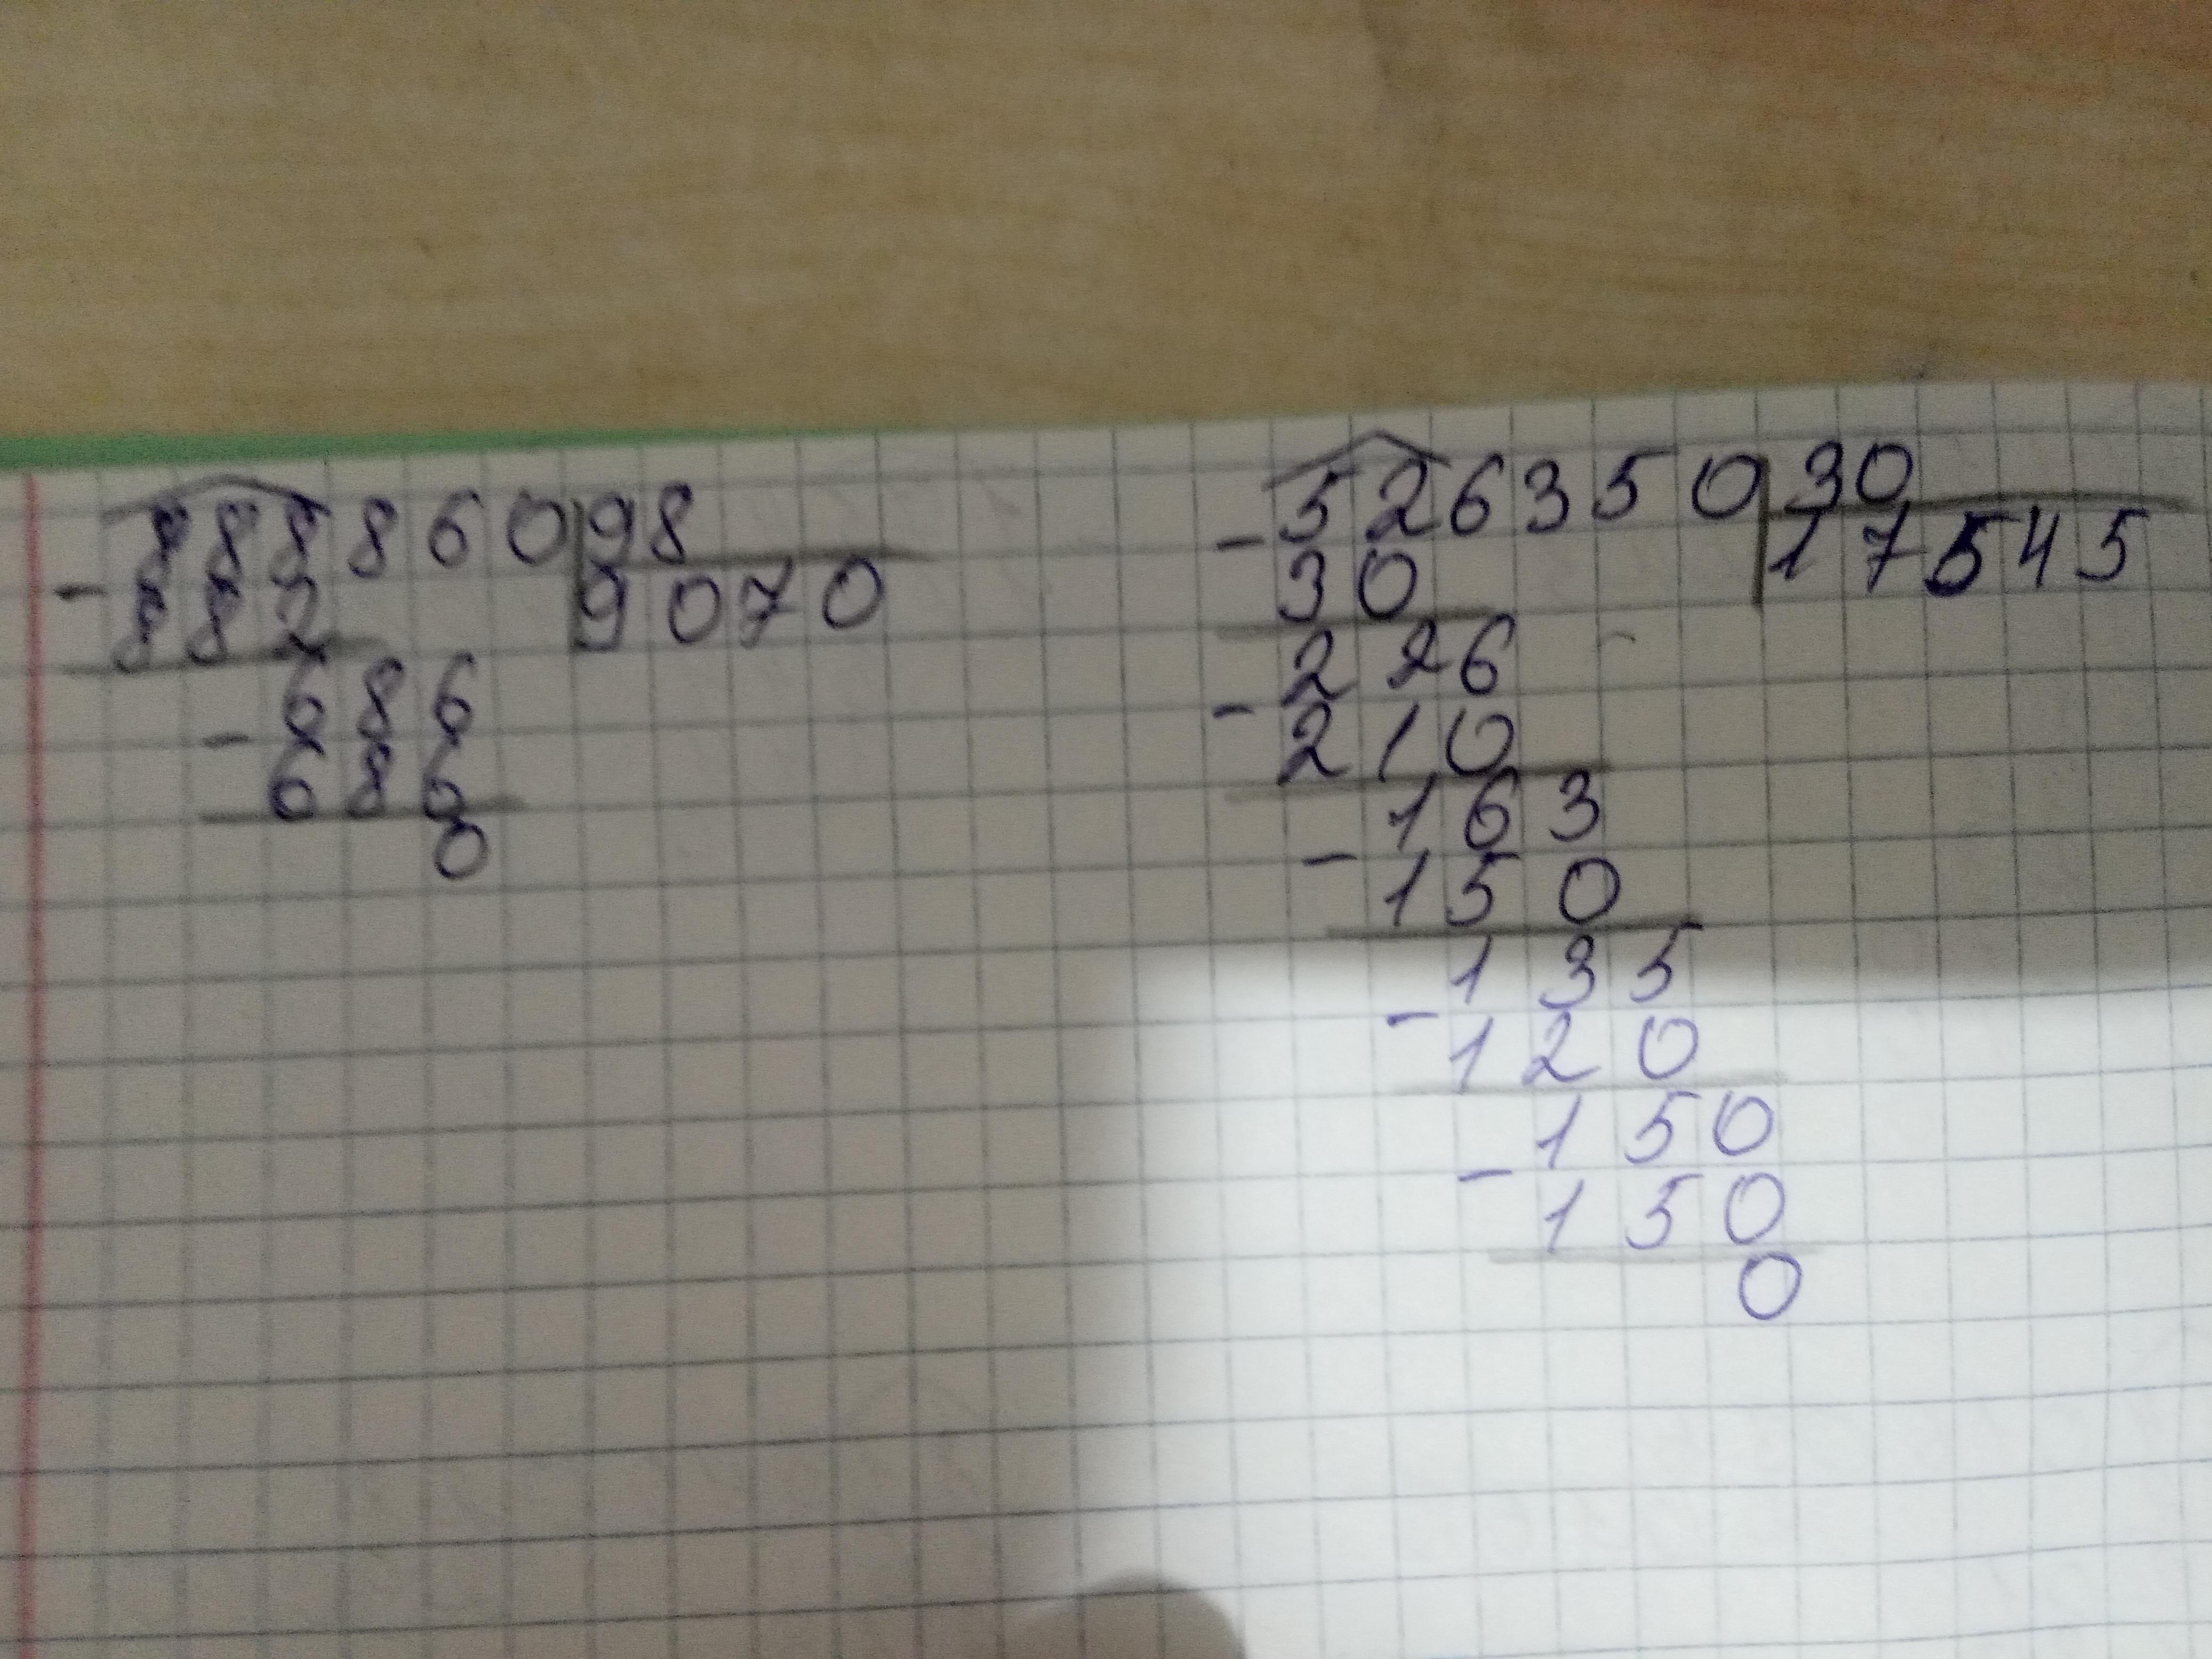 888860 98
- 882 9070
686
- 686
0
526350 30
- 30 17545
226
- 210
163
- 150
135
- 120
150
- 150
0